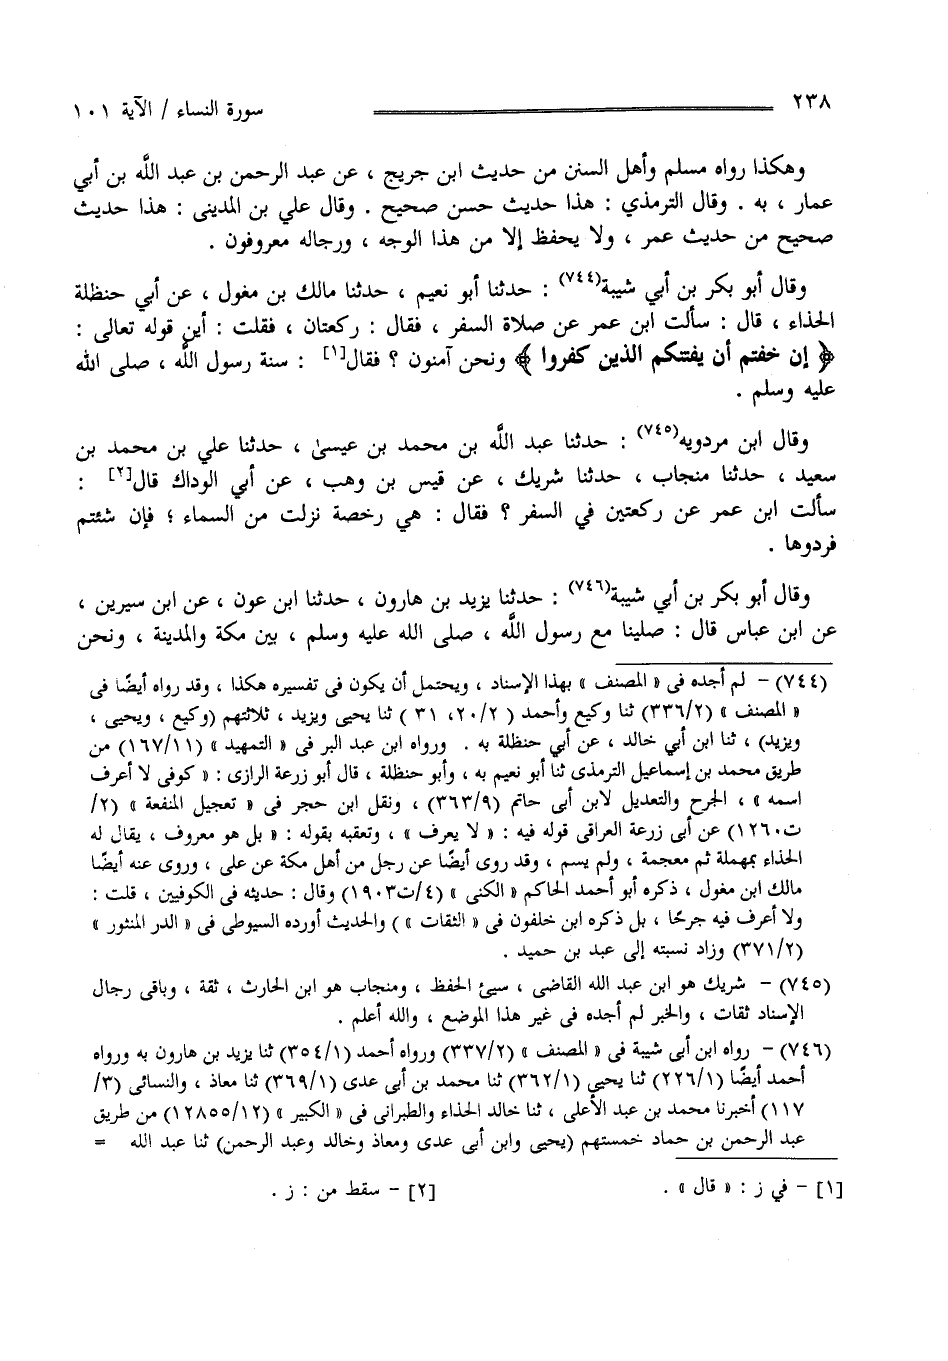 ٢٣٨ سورة النساء / الآية ١٠١
وهكذا رواه مسلم وأهل السنن من حديث ابن جريج ، عن عبد الرحمن بن عبد اللَّه بن أبي
عمار ، به . وقال الترمذي : هذا حديث حسن صحيح . وقال علي بن المديني : هذا حديث
صحيح من حديث عمر ، ولا يحفظ إلا من هذا الوجه ، ورجاله معروفون .
وقال أبو بكر بن أبي شيبة(٧٤٤) : حدثنا أبو نعيم ، حدثنا مالك بن مغول ، عن أبي حنظلة
الحذاء ، قال : سألت ابن عمر عن صلاة السفر ، فقال : ركعتان ، فقلت : أين قوله تعالى :
﴿ إن خفتم أن يفتنكم الذين كفروا ﴾ ونحن آمنون ؟ فقال[١] : سنة رسول اللَّه ، صلى الله
عليه وسلم .
وقال ابن مردويه(٧٤٥) : حدثنا عبد اللَّه بن محمد بن عيسىٰ ، حدثنا علي بن محمد بن
سعيد ، حدثنا منجاب ، حدثنا شريك ، عن قيس بن وهب ، عن أبي الوداك قال[٢] :
سألت ابن عمر عن ركعتين في السفر ؟ فقال : هي رخصة نزلت من السماء ؛ فإن شئتم
فردوها .
وقال أبو بكر بن أبي شيبة(٧٤٦) : حدثنا يزيد بن هارون ، حدثنا ابن عون ، عن ابن سيرين ،
عن ابن عباس قال : صلينا مع رسول اللَّه ، صلى الله عليه وسلم ، بين مكة والمدينة ، ونحن
(٧٤٤) – لم أجده فى « المصنف » بهذا الإسناد ، ويحتمل أن يكون فى تفسيره هكذا ، وقد رواه أيضًا فى
« المصنف » (٣٣٦/٢) ثنا وكيع وأحمد ( ٢٠/٢، ٣١ ) ثنا يحيى ويزيد ، ثلاثتهم (وكيع ، ويحيى ،
ويزيد) ، ثنا ابن أبي خالد ، عن أبي حنظلة به . ورواه ابن عبد البر فى « التمهيد » (١٦٧/١١) من
طريق محمد بن إسماعيل الترمذى ثنا أبو نعيم به ، وأبو حنظلة ، قال أبو زرعة الرازى : « كوفى لا أعرف
اسمه » ، الجرح والتعديل لابن أبى حاتم (٣٦٣/٩) ، ونقل ابن حجر فى « تعجيل المنفعة » (٢/
ت١٢٦٠) عن أبى زرعة العراقى قوله فيه : « لا يعرف » ، وتعقبه بقوله : « بل هو معروف ، يقال له
الحذاء بمهملة ثم معجمة ، ولم يسم ، وقد روى أيضًا عن رجل من أهل مكة عن على ، وروى عنه أيضًا
مالك ابن مغول ، ذكره أبو أحمد الحاكم « الكنى » (٤/ت١٩٠٣) وقال : حديثه فى الكوفيين ، قلت :
ولا أعرف فيه جرحًا ، بل ذكره ابن خلفون فى « الثقات » ) والحديث أورده السيوطى فى « الدر المنثور »
(٣٧١/٢) وزاد نسبته إلى عبد بن حميد .
(٧٤٥) – شريك هو ابن عبد الله القاضى ، سيئ الحفظ ، ومنجاب هو ابن الحارث ، ثقة ، وباقى رجال
الإسناد ثقات ، والخبر لم أجده فى غير هذا الموضع ، والله أعلم .
(٧٤٦) – رواه ابن أبى شيبة فى « المصنف » (٣٣٧/٢) ورواه أحمد (٣٥٤/١) ثنا يزيد بن هارون به ورواه
أحمد أيضًا (٢٢٦/١) ثنا يحيى (٣٦٢/١) ثنا محمد بن أبى عدى (٣٦٩/١) ثنا معاذ ، والنسائى (٣/
١١٧) أخبرنا محمد بن عبد الأعلى ، ثنا خالد الحذاء والطبرانى فى « الكبير » (١٢٨٥٥/١٢) من طريق
عبد الرحمن بن حماد خمستهم (يحيى وابن أبى عدى ومعاذ وخالد وعبد الرحمن) ثنا عبد الله =
[١] – في ز : « قال » . [٢] – سقط من : ز .